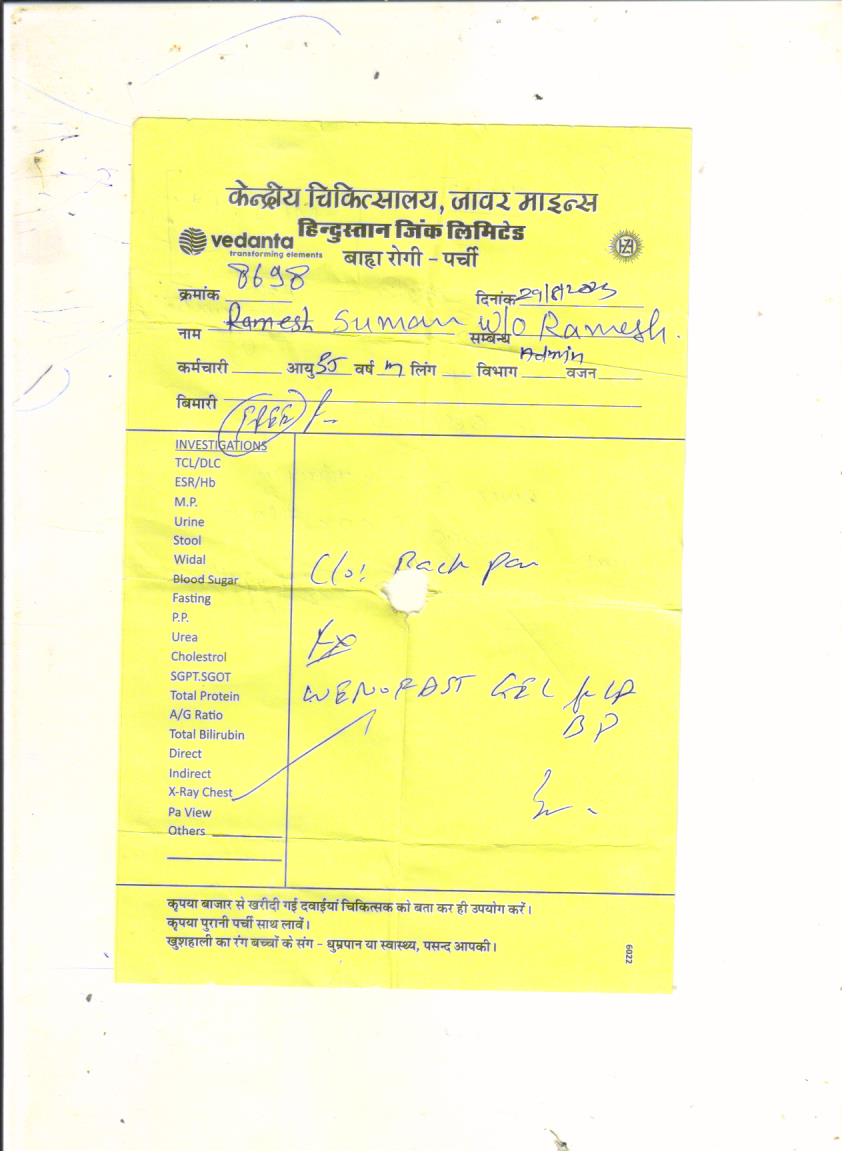 केन्द्रीय चिकित्सालय, जावर माइन्स
हिन्दुस्तान जिंक लिमिटेड
vedanta
transforming elements
बाह्य रोगी - पर्ची
क्रमांक 8698 दिनांक 29/8/2023
नाम Ramesh Suman सम्बन्ध W/O Ramesh.
कर्मचारी आयु वर्ष लिंग विभाग Admin वजन
बिमारी
INVESTIGATIONS
TCL/DLC
ESR/Hb
M.P.
Urine
Stool
Widal
C/o: Back pain
Blood Sugar
Fasting
P.P.
Urea
Rx
Cholestrol
SGPT.SGOT
Total Protein
GEL
A/G Ratio
Total Bilirubin
Direct
Indirect
X-Ray Chest
Pa View
Others
कृपया बाजार से खरीदी गई दवाईयां चिकित्सक को बता कर ही उपयोग करें।
कृपया पुरानी पर्ची साथ लावें।
खुशहाली का रंग बच्चों के संग - धुम्रपान या स्वास्थ्य, पसन्द आपकी।
6022